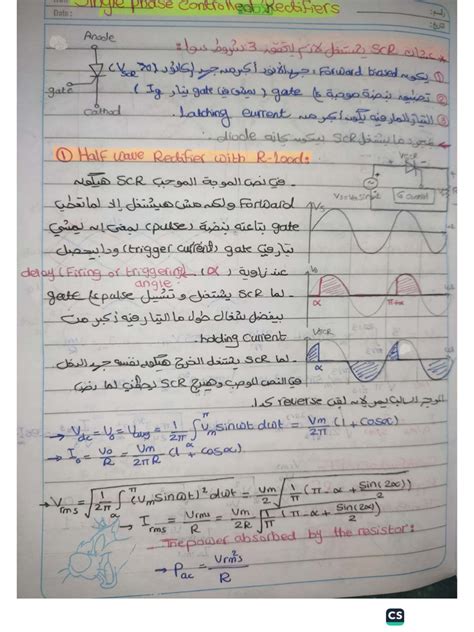 Single phase Controlled Rectifiers
Anode
gate
Cathod
عشان SCR يشتغل لازم يتحقق 3 شروط سوا:
① يكون Forward biased: جهد الأنود أكبر من جهد الكاثود (VSCR > 0)
② تصله نبضة موجبة ع gate (يمشي في gate تيار Ig)
③ التيار المار فيه يكون أكبر من Latching current.
بمجرد ما يشتغل SCR بيكون كأنه diode.
① Half wave Rectifier with R-load:
في نص الموجة الموجب SCR هيكون
Forward ولكن مش هيشتغل إلا لما تعطي
gate بتاعته نبضة (pulse) بمعنى إنه يمشي
تيار في gate (trigger current) ودا بيحصل
عند زاوية (α) delay (Firing or triggering)
angle
لما SCR يشتغل و تشيل pulse ع gate
بيفضل شغال طول ما التيار فيه أكبر من
holding current
لما SCR يشتغل الخرج هيكون نفسه جهد الدخل
في النص الموجب وهييجي SCR يطفي لما نص
الموجة السالب يمر لأنه بقى reverse كدا.
→ Vdc = Vo = Vavg = 1/2π ∫ Vm sinωt dωt = Vm/2π (1 + cosα)
→ Io = Vo/R = Vm/2πR (1 + cosα)
→ Vrms = √(1/2π ∫ (Vm sinωt)² dωt) = Vm/2 √(1/π (π - α + sin(2α)/2))
→ Irms = Vrms/R = Vm/2R √(1/π (π - α + sin(2α)/2))
The power absorbed by the resistor:
→ Pac = Vrms²/R
VSCR
Vs
Vo
α
π+α
VSCR
α
CS